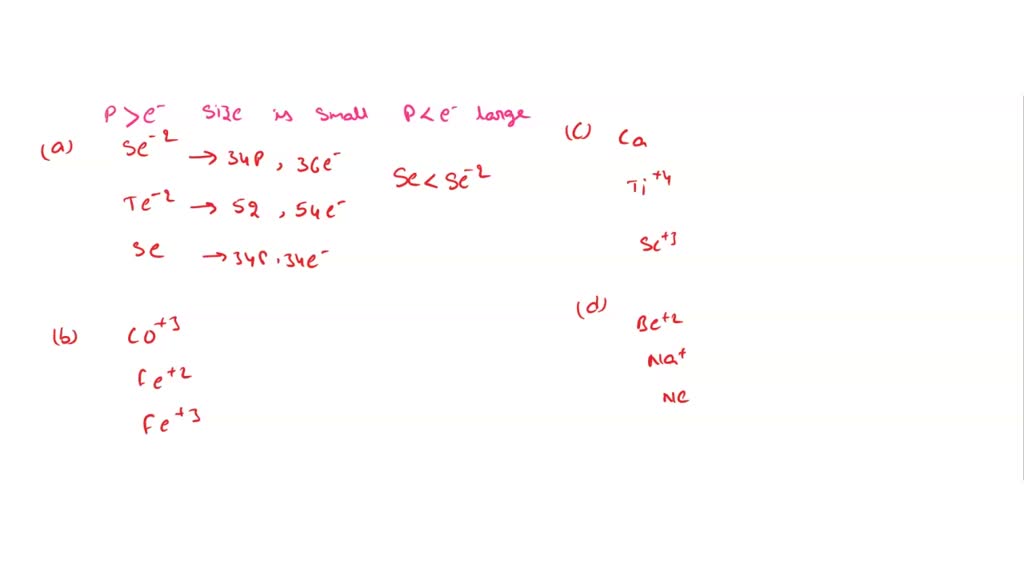 P>e⁻ size is small P<e⁻ large
(a) Se⁻² → 34P, 36e⁻
Te⁻² → 52, 54e⁻
Se → 34P, 34e⁻
Se < Se⁻²
(b) Co⁺³
Fe⁺²
Fe⁺³
(c) Ca
Ti⁺⁴
Sc⁺³
(d) Be⁺²
Na⁺
Ne